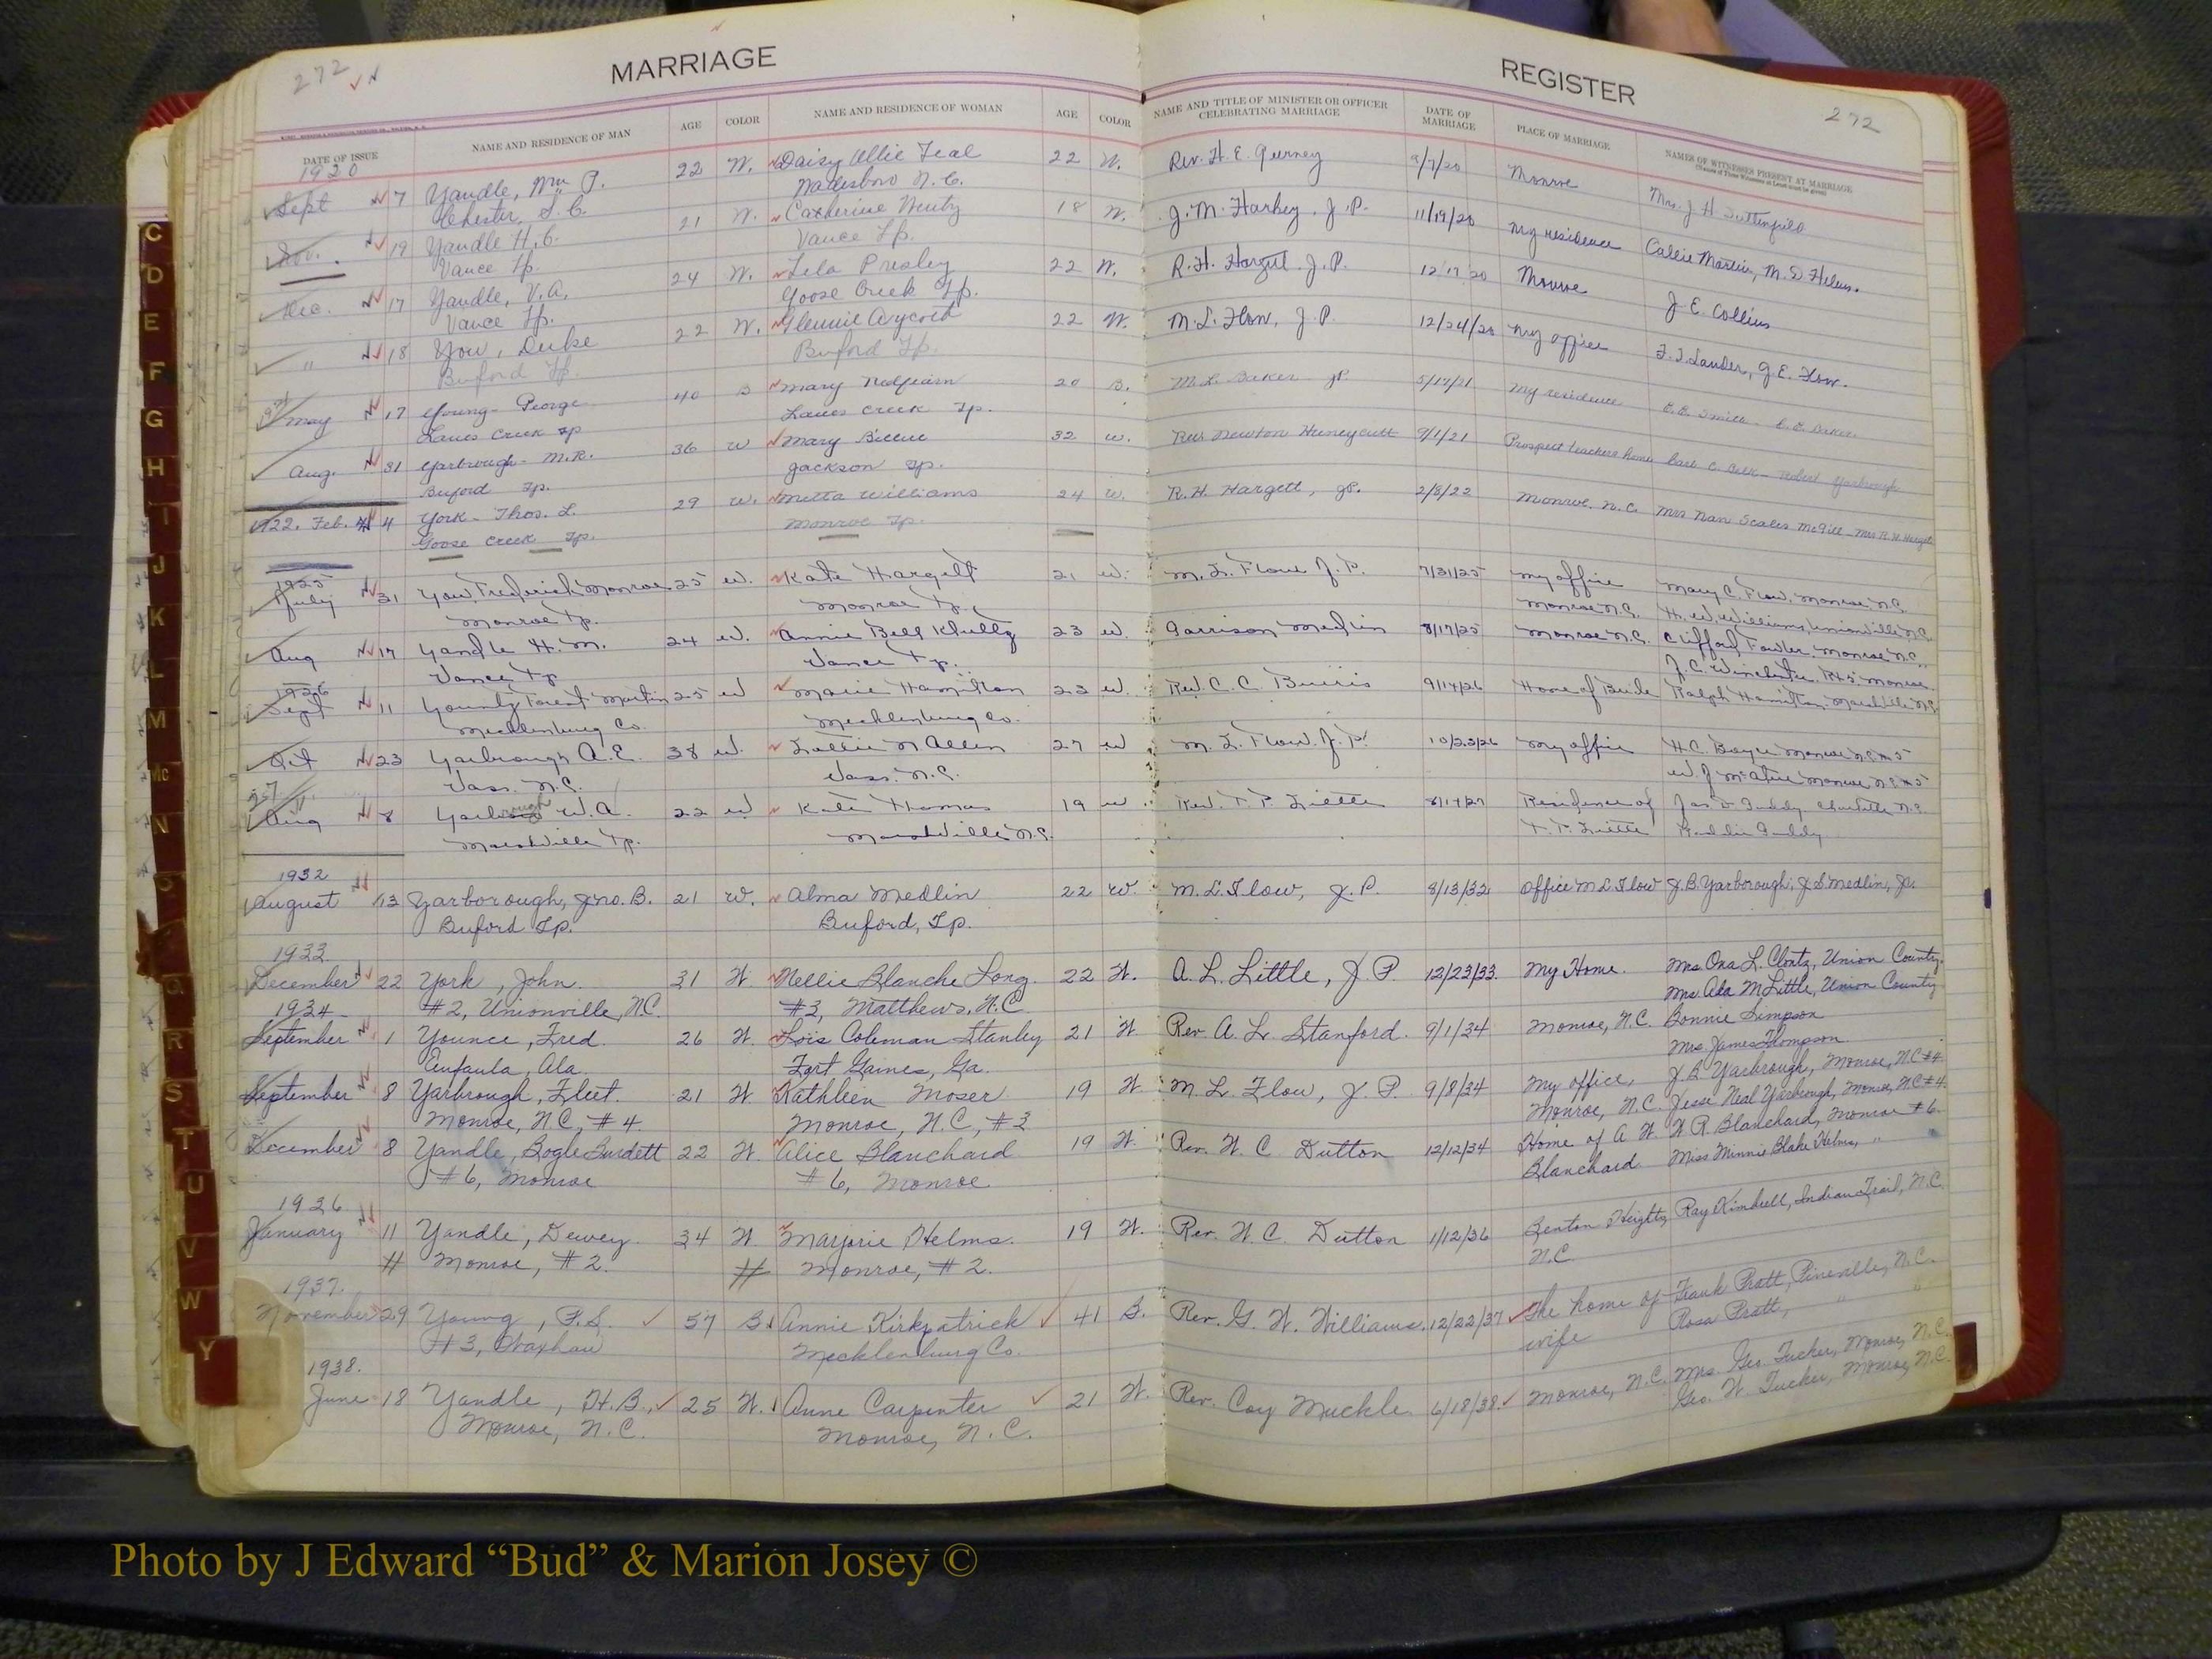 272
MARRIAGE
REGISTER
272
DATE OF ISSUE
NAME AND RESIDENCE OF MAN
AGE
COLOR
NAME AND RESIDENCE OF WOMAN
AGE
COLOR
NAME AND TITLE OF MINISTER OR OFFICER
CELEBRATING MARRIAGE
DATE OF
MARRIAGE
PLACE OF MARRIAGE
NAMES OF WITNESSES PRESENT AT MARRIAGE
1920
Sept 7 Yandle, Wm P. 22 W. Daisy Ollie Teal 22 W. Rev. H. E. Gurney 9/7/20 Monroe Mrs. J H
Chester, S. C. Wadesboro N. C.
Nov. 19 Yandle H. C. 21 W. Catherine 18 W. J. M. Harkey, J. P. 11/19/20 my residence Callie Martin, M. D. Helms.
Vance Tp. Vance Tp.
Dec. 17 Yandle, V. A. 24 W. Lela Presley 22 W. R. H. Hargett J. P. 12/17/20 Monroe J. E. Collins
Vance Tp. Goose Creek Tp.
" 18 Yow, Duke 22 W. Glennie Aycoth 22 W. M. L. Flow, J. P. 12/24/20 my office
Buford Tp. Buford Tp.
May 17 Young- George 40 B Mary 20 B. M. L. Baker JP. 5/17/21 my residence
Lanes Creek Tp Lanes Creek Tp.
Aug. 31 Yarbrough- M. R. 36 W Mary 32 W. Rev Newton Huneycutt 9/1/21 Prospect teachers home
Buford Tp. Jackson Tp.
1922. Feb. 4 York- Thos. L. 29 W. Metta Williams 24 W. R. H. Hargett, JP. 2/8/22 Monroe, N. C. Mrs Nan Scales McGill - Mrs R. H. Hargett
Goose Creek Tp. Monroe Tp.
1925
July 31 Yow, Frederick Monroe 25 W. Kate Hargett 21 W. M. L. Flow J. P. 7/31/25 My office Mary C. Flow, Monroe, N. C.
Monroe Tp. Monroe Tp. Monroe N. C. H. W. Williams, Unionville, N. C.
Aug 17 Yandle H. M. 24 W. Annie Bell 23 W. Garrison Medlin 8/17/25 Monroe N. C. Clifford Fowler, Monroe N. C.
Vance Tp Vance Tp. J. C. Winchester, Monroe
1926
Sept 11 Martin 25 W Marie Hamilton 22 W. Rev. C. C. Burris 9/14/26 Home of Bride Ralph Hamilton, Marshville N. C.
Mecklenburg Co. Mecklenburg Co.
Oct 23 Yarbrough A. E. 38 W. Lallie N. Allen 27 W M. L. Flow. J. P. 10/23/26 My office
Vass. N. C. Vass. N. C.
Aug 8 Yarbrough W. A. 22 W Kate Thomas 19 W Rev. T. P. Little Residence of
Marshville Tp. Marshville N. C. T. P. Little
1932
August 13 Yarborough, Jno. B. 21 W. Alma Medlin 22 W. M. L. Flow, J. P. 8/13/32 Office M L Flow J. B. Yarborough, J. S. Medlin, Jr.
Buford Tp. Buford, Tp.
1933
December 22 York, John. 31 W. Nellie Blanche Long. 22 W. A. L. Little, J. P. 12/23/33. My Home. Mrs. Ona L. Clontz, Union County.
#2, Unionville, N.C. #3, Matthews, N.C. Mrs. Ada M Little, Union County
1934
September 1 Younce, Fred. 26 W. Lois Coleman Stanley 21 W. Rev A. L. Stanford. 9/1/34 Monroe, N. C. Bonnie Simpson
Eufaula, Ala. Fort Gaines, Ga. Mrs. James Thompson
September 8 Yarbrough, Fleet. 21 W Kathleen Moser 19 W. M. L. Flow, J. P. 9/8/34 My office, J. B. Yarbrough, Monroe, N.C #4.
Monroe, N.C, #4. Monroe, N.C, #3 Monroe, N.C. Jesse Neal Yarbrough, Monroe, N.C #4.
December 8 Yandle, Bogle Burdett 22 W. Alice Blanchard 19 W. Rev. W. C. Dutton 12/12/34 Home of A. W. W R. Blanchard, Monroe #6.
#6, Monroe #6, Monroe Blanchard Miss Minnie Blake Helms, "
1936
January 11 Yandle, Dewey. 34 W. Marjorie Helms. 19 W. Rev. W. C. Dutton 1/12/36 Benton Heights, Ray Kimbrell, Indian Trail, N.C.
Monroe, #2. Monroe, #2. N.C.
1937.
November 29 Young, F. S. 57 B. Annie Kirkpatrick 41 B. Rev. G. W. Williams. 12/22/37 The home of Frank Pratt, Pineville, N.C.
#3, Waxhaw Mecklenburg Co. wife Rosa Pratt, "
1938.
June 18 Yandle, H. B., 25 W. Anne Carpenter 21 W. Rev. Coy Muckle 6/18/38. Monroe, N.C. Mrs. Geo. Tucker, Monroe, N.C.
Monroe, N.C. Monroe, N.C. Geo. W. Tucker, Monroe, N.C.
C
D
E
F
G
H
I
J
K
L
M
Mc
N
O
Q
R
S
T
U
V
W
Y
Photo by J Edward “Bud” & Marion Josey ©